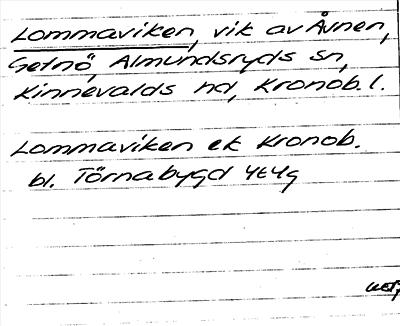 Lommaviken, vik av Åsnen,
Getnö, Almundsryds sn,
Kinnevalds hd, Kronob. l.
Lommaviken ek Kronob.
bl. Törnabygd 4t4g